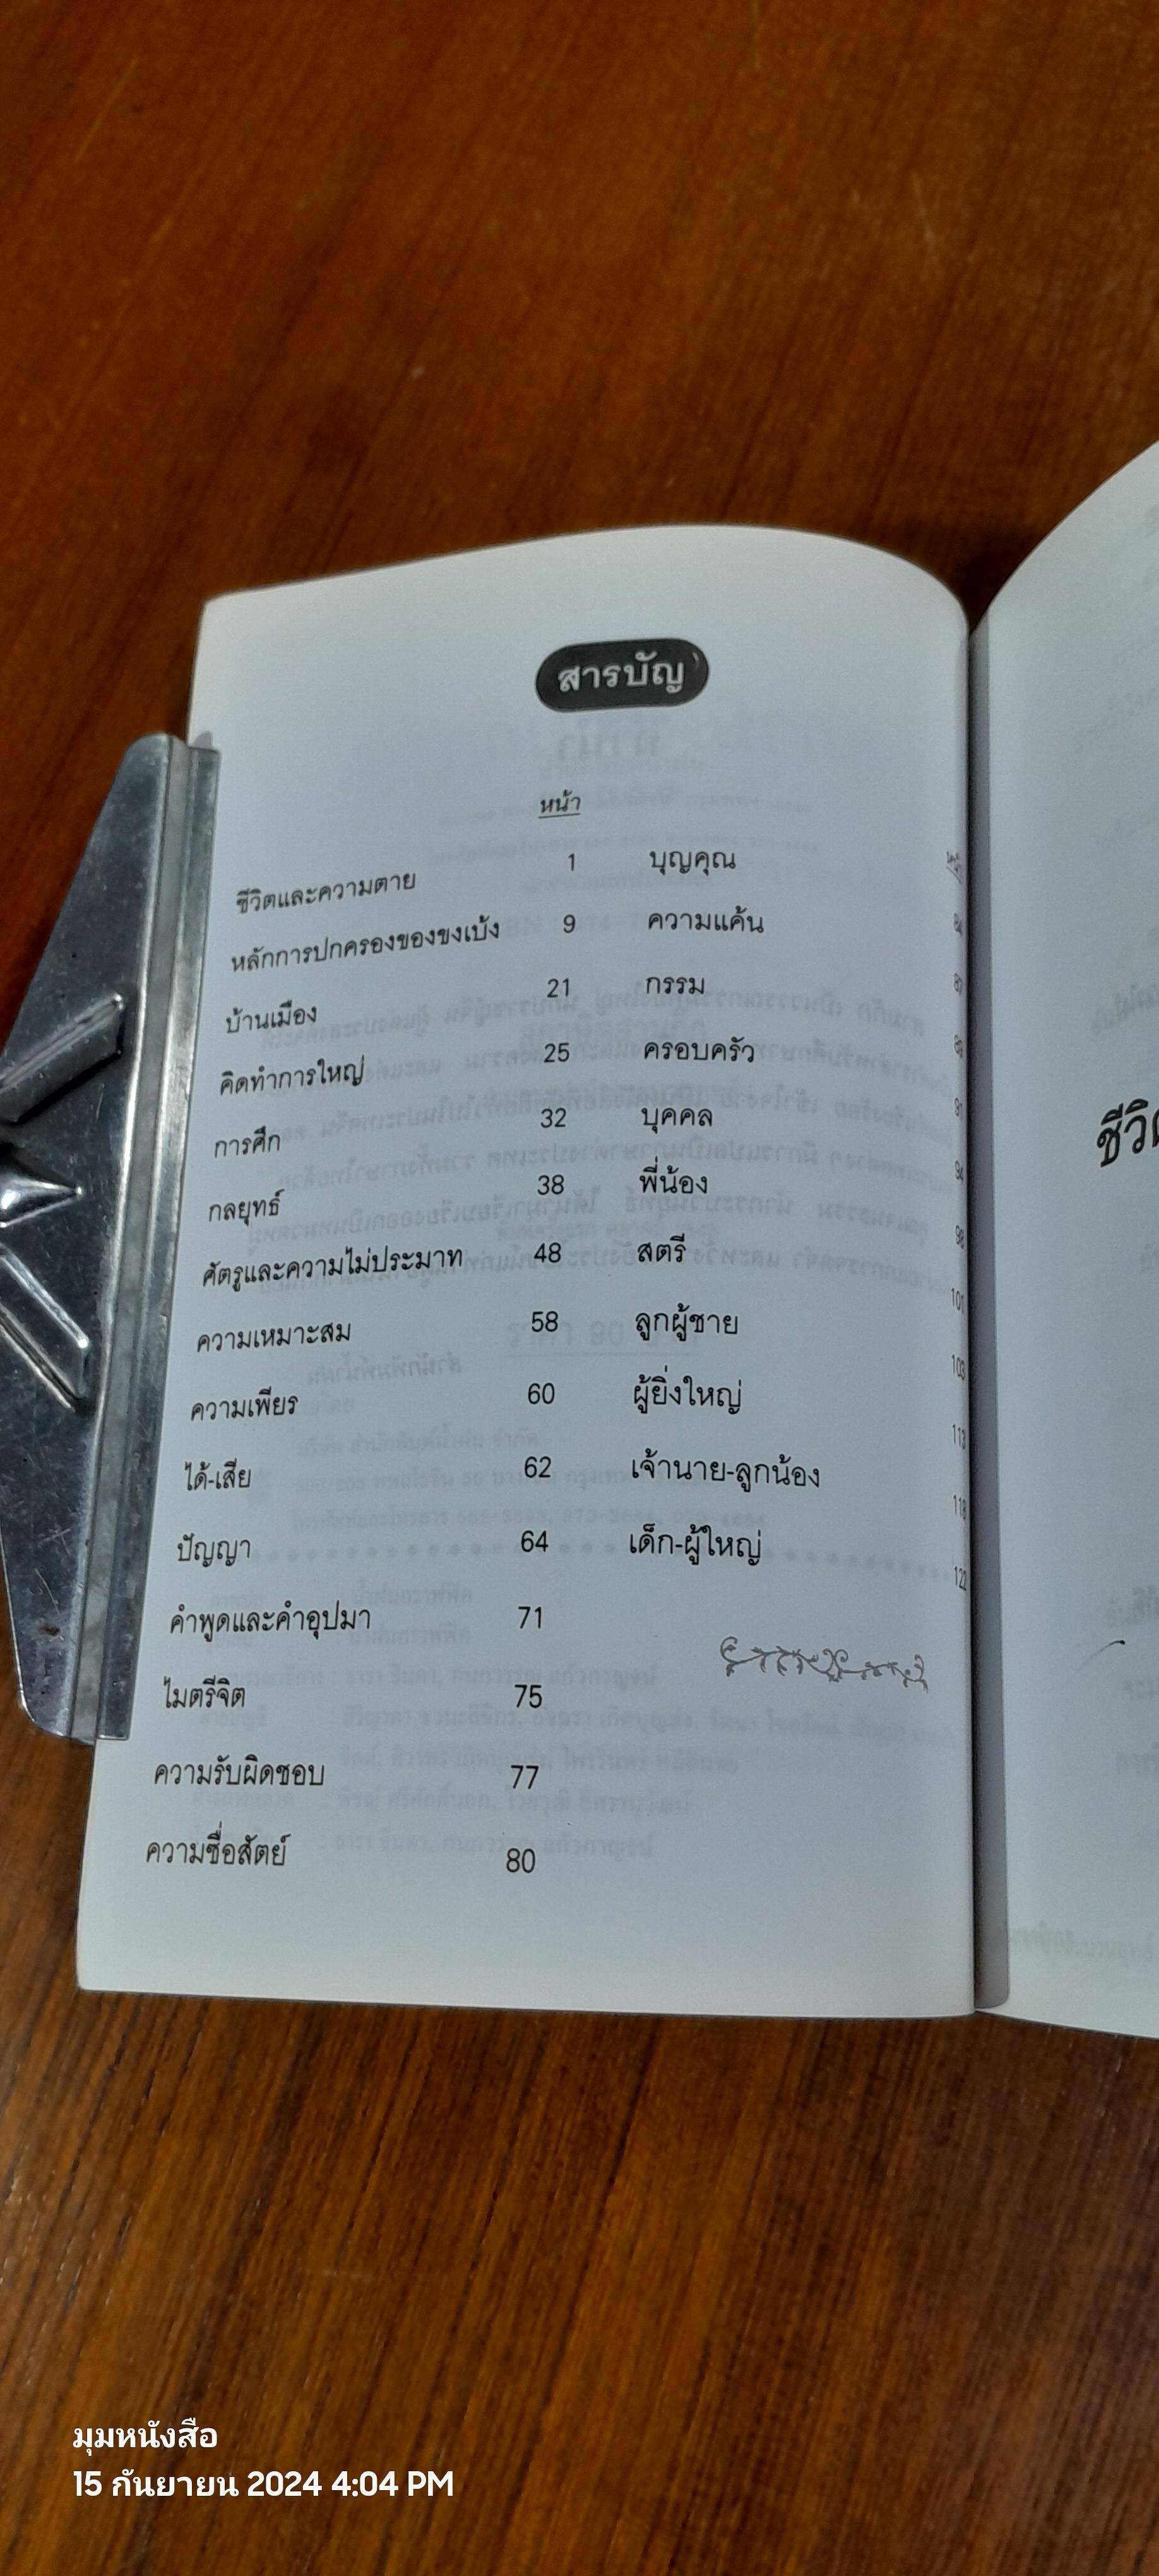 สารบัญ
หน้า
หน้า
ชีวิตและความตาย 1
หลักการปกครองของขงเบ้ง 9
บ้านเมือง 21
คิดทำการใหญ่ 25
การศึก 32
กลยุทธ์ 38
ศัตรูและความไม่ประมาท 48
ความเหมาะสม 58
ความเพียร 60
ได้-เสีย 62
ปัญญา 64
คำพูดและคำอุปมา 71
ไมตรีจิต 75
ความรับผิดชอบ 77
ความซื่อสัตย์ 80
บุญคุณ 84
ความแค้น 87
กรรม 89
ครอบครัว 91
บุคคล 94
พี่น้อง 98
สตรี 101
ลูกผู้ชาย 103
ผู้ยิ่งใหญ่ 113
เจ้านาย-ลูกน้อง 118
เด็ก-ผู้ใหญ่ 122
มุมหนังสือ
15 กันยายน 2024 4:04 PM